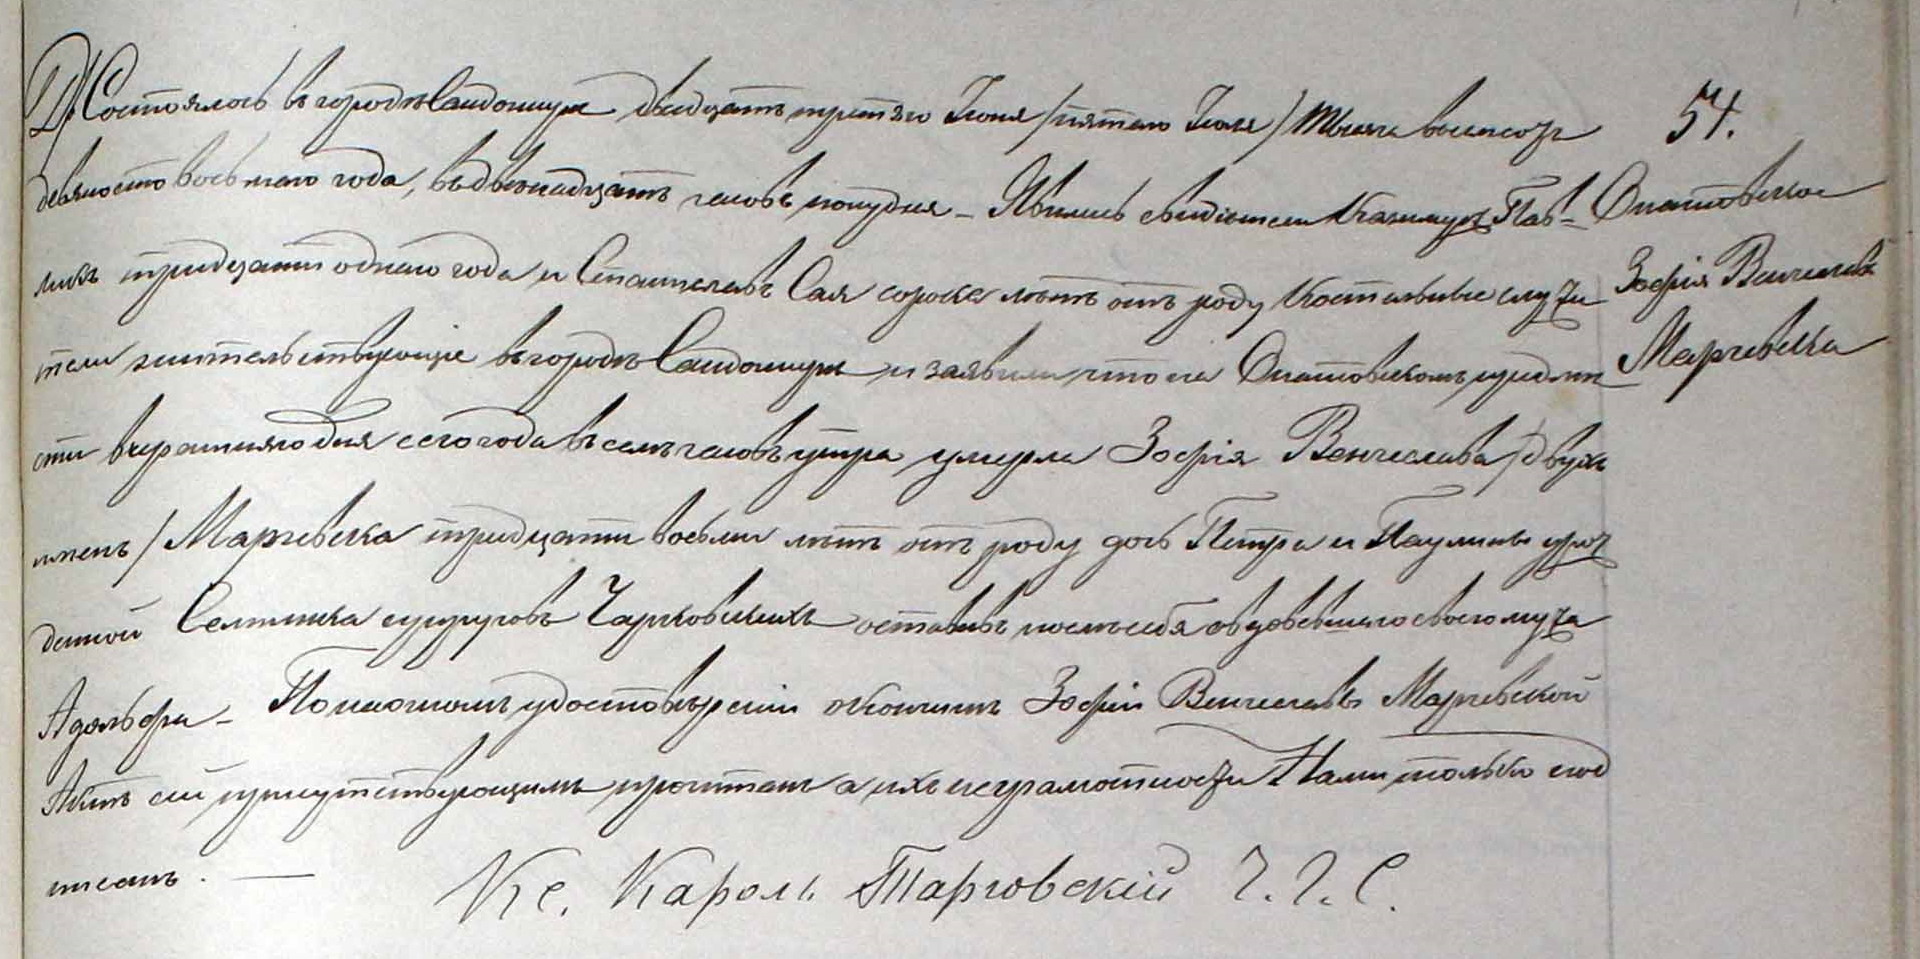 Д/ Состоялось въ городѣ Сандомирѣ двадцать третьяго Іюня /пятаго Іюля/ тысяча восемсотъ
54.
девяносто восьмаго года, въ двѣнадцать часовъ пополудня – Явились свидѣтели Казимиръ Пав-
Опатовское
ликъ тридцати одного года и Станиславъ Сая сорока лѣтъ отъ роду костельные служи
Зофія Венчеслава
тели жительствующіе въ городѣ Сандомирѣ и заявили что на Опатовскомъ предмѣ
Маргевска
стіи вчерашняго дня сего года въ семь часовъ утра умерла Зофія Венчеслава /двухъ
именъ/ Маргевска тридцати восьми лѣтъ отъ роду дочь Петра и Паулины урож
денной супруговъ Чарковскихъ оставивъ послѣ себя овдовѣвшаго своего мужа
Адольфа – По наочномъ удостовѣреніи о кончинѣ Зофіи Венчеславы Маргевской
Актъ сей присутствующимъ прочитанъ а ихъ неграмотности Нами только под
писанъ. —
Кс. Кароль Тарговскій Ч. Г. С.